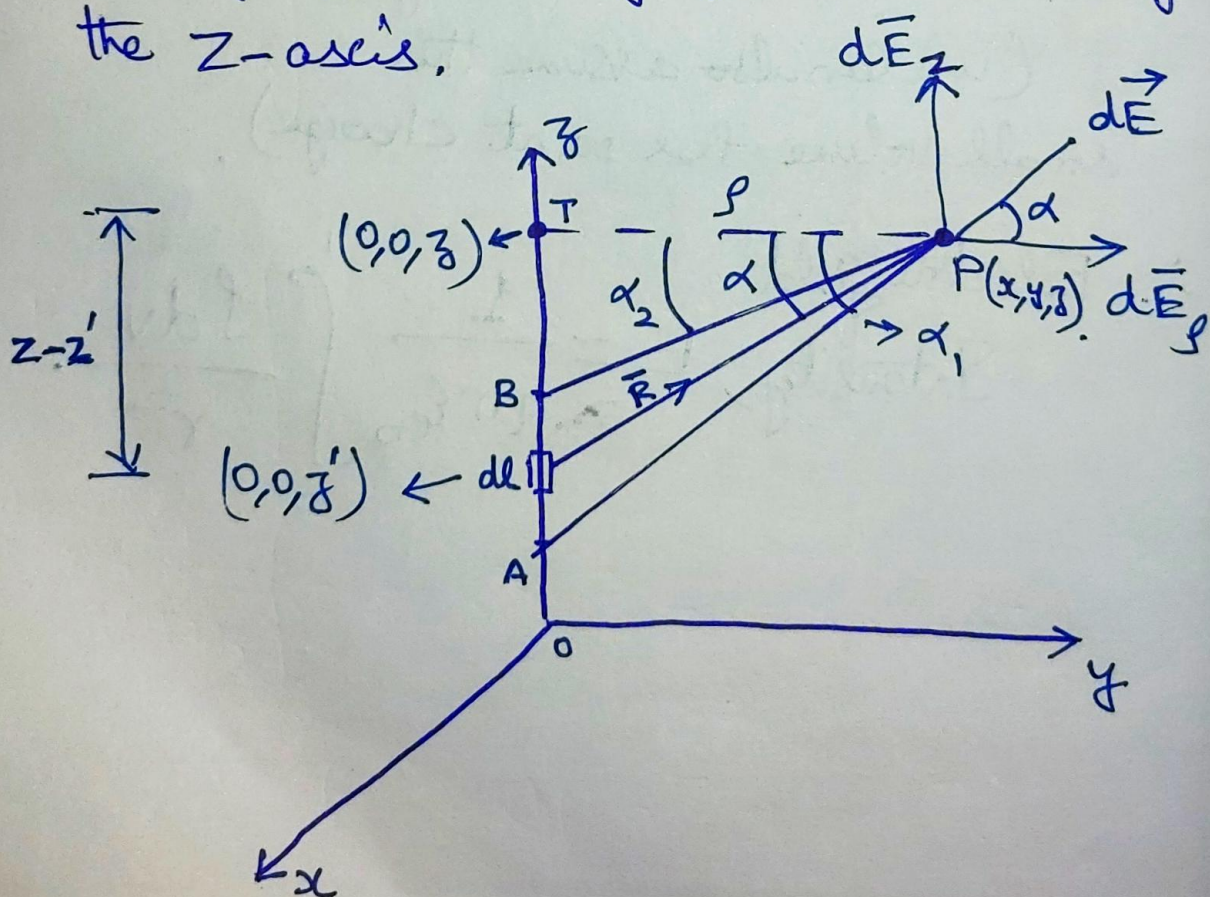 the Z-axis.
dE̅z
dE⃗
z
T
ρ
α
(0,0,z)
α₂
α
P(x,y,z).
dE̅ρ
α₁
z-z'
B
R̅
(0,0,z')
dl
A
O
y
x